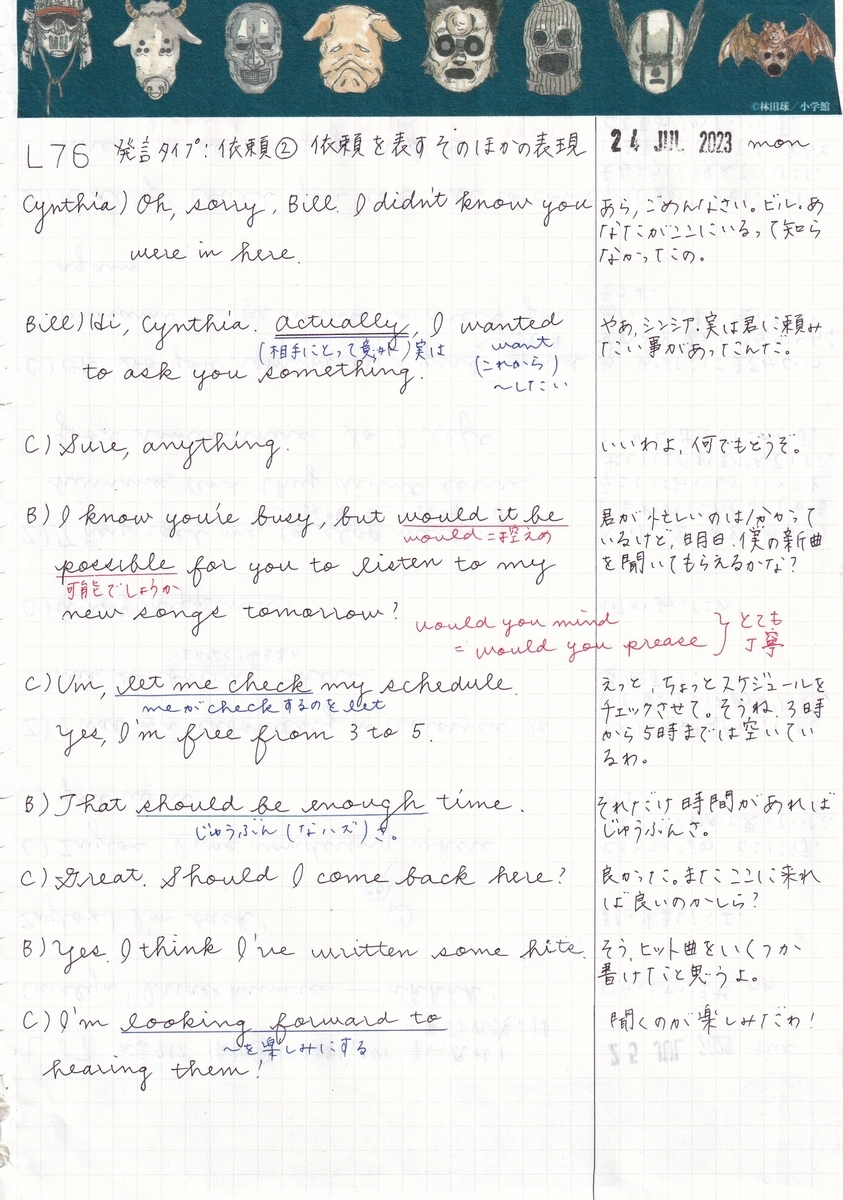 ©林田球／小学館
L76 発言タイプ：依頼② 依頼を表すそのほかの表現
24 JUL 2023 mon
Cynthia) Oh, sorry, Bill. I didn't know you
were in here.
あら，ごめんなさい。ビル．あ
なたがここにいるって知ら
なかったの。
Bill) Hi, Cynthia. actually, I wanted
(相手にとって意外) 実は
want
to ask you something.
(これから)
～したい
やあ，シンシア．実は君に頼み
たい事があったんだ。
C) Sure, anything.
いいわよ，何でもどうぞ。
B) I know you're busy, but would it be
would = 控えめ
possible for you to listen to my
可能でしょうか
new songs tomorrow?
would you mind
= would you prease
とても
丁寧
君が忙しいのは分かって
いるけど，明日，僕の新曲
を聞いてもらえるかな？
C) Um, let me check my schedule.
meがcheckするのをlet
Yes, I'm free from 3 to 5.
えっと，ちょっとスケジュールを
チェックさせて。そうね．3時
から5時までは空いてい
るわ。
B) That should be enough time.
じゅうぶん(なハズ)さ。
それだけ時間があれば
じゅうぶんさ。
C) Great. Should I come back here?
良かった。またここに来れ
ば良いのかしら？
B) Yes. I think I've written some hits.
そう，ヒット曲をいくつか
書けたと思うよ。
C) I'm looking forward to
を楽しみにする
hearing them!
聞くのが楽しみだわ！